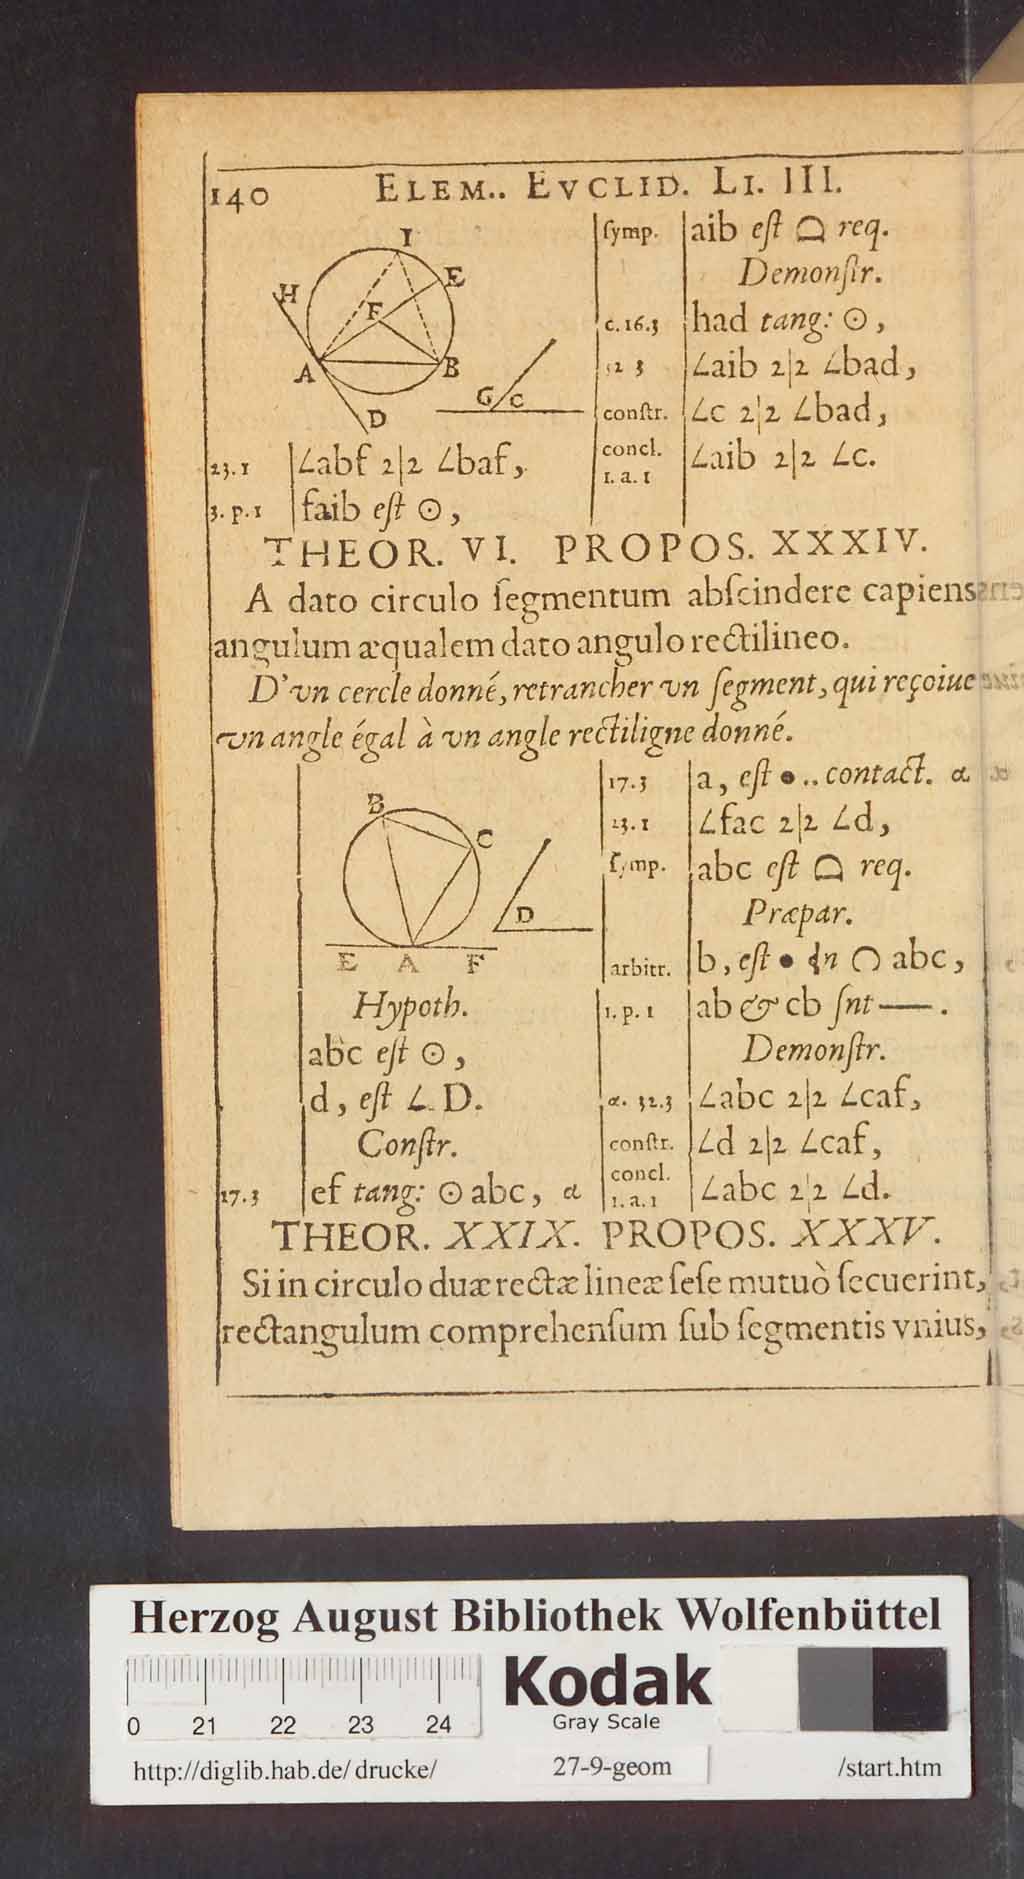 140 ELEM.. EVCLID. LI. III.
I
H
E
F
A
B
G C
D
23.1 ∠abf 2|2 ∠baf,
3. p. 1 faib eſt ⊙,
ſymp. aib eſt ⌓ req.
Demonſtr.
c. 16.3 had tang: ⊙,
32 3 ∠aib 2|2 ∠bad,
conſtr. ∠c 2|2 ∠bad,
concl. 1. a. 1 ∠aib 2|2 ∠c.
THEOR. VI. PROPOS. XXXIV.
A dato circulo ſegmentum abſcindere capiens
angulum æqualem dato angulo rectilineo.
D'vn cercle donné, retrancher vn ſegment, qui reçoiue
vn angle égal à vn angle rectiligne donné.
B
C
D
E A F
Hypoth.
abc eſt ⊙,
d, eſt ∠ D.
Conſtr.
17.3 ef tang: ⊙ abc, α
17.3 a, eſt •.. contact. α
23.1 ∠fac 2|2 ∠d,
ſymp. abc eſt ⌓ req.
Præpar.
arbitr. b, eſt • in ⌒ abc,
1. p. 1 ab & cb ſnt —.
Demonſtr.
α. 32.3 ∠abc 2|2 ∠caf,
conſtr. ∠d 2|2 ∠caf,
concl. 1. a. 1 ∠abc 2|2 ∠d.
THEOR. XXIX. PROPOS. XXXV.
Si in circulo duæ rectæ lineæ ſeſe mutuò ſecuerint,
rectangulum comprehenſum ſub ſegmentis vnius,
Herzog August Bibliothek Wolfenbüttel
0 21 22 23 24
Kodak
Gray Scale
http://diglib.hab.de/drucke/ 27-9-geom /start.htm